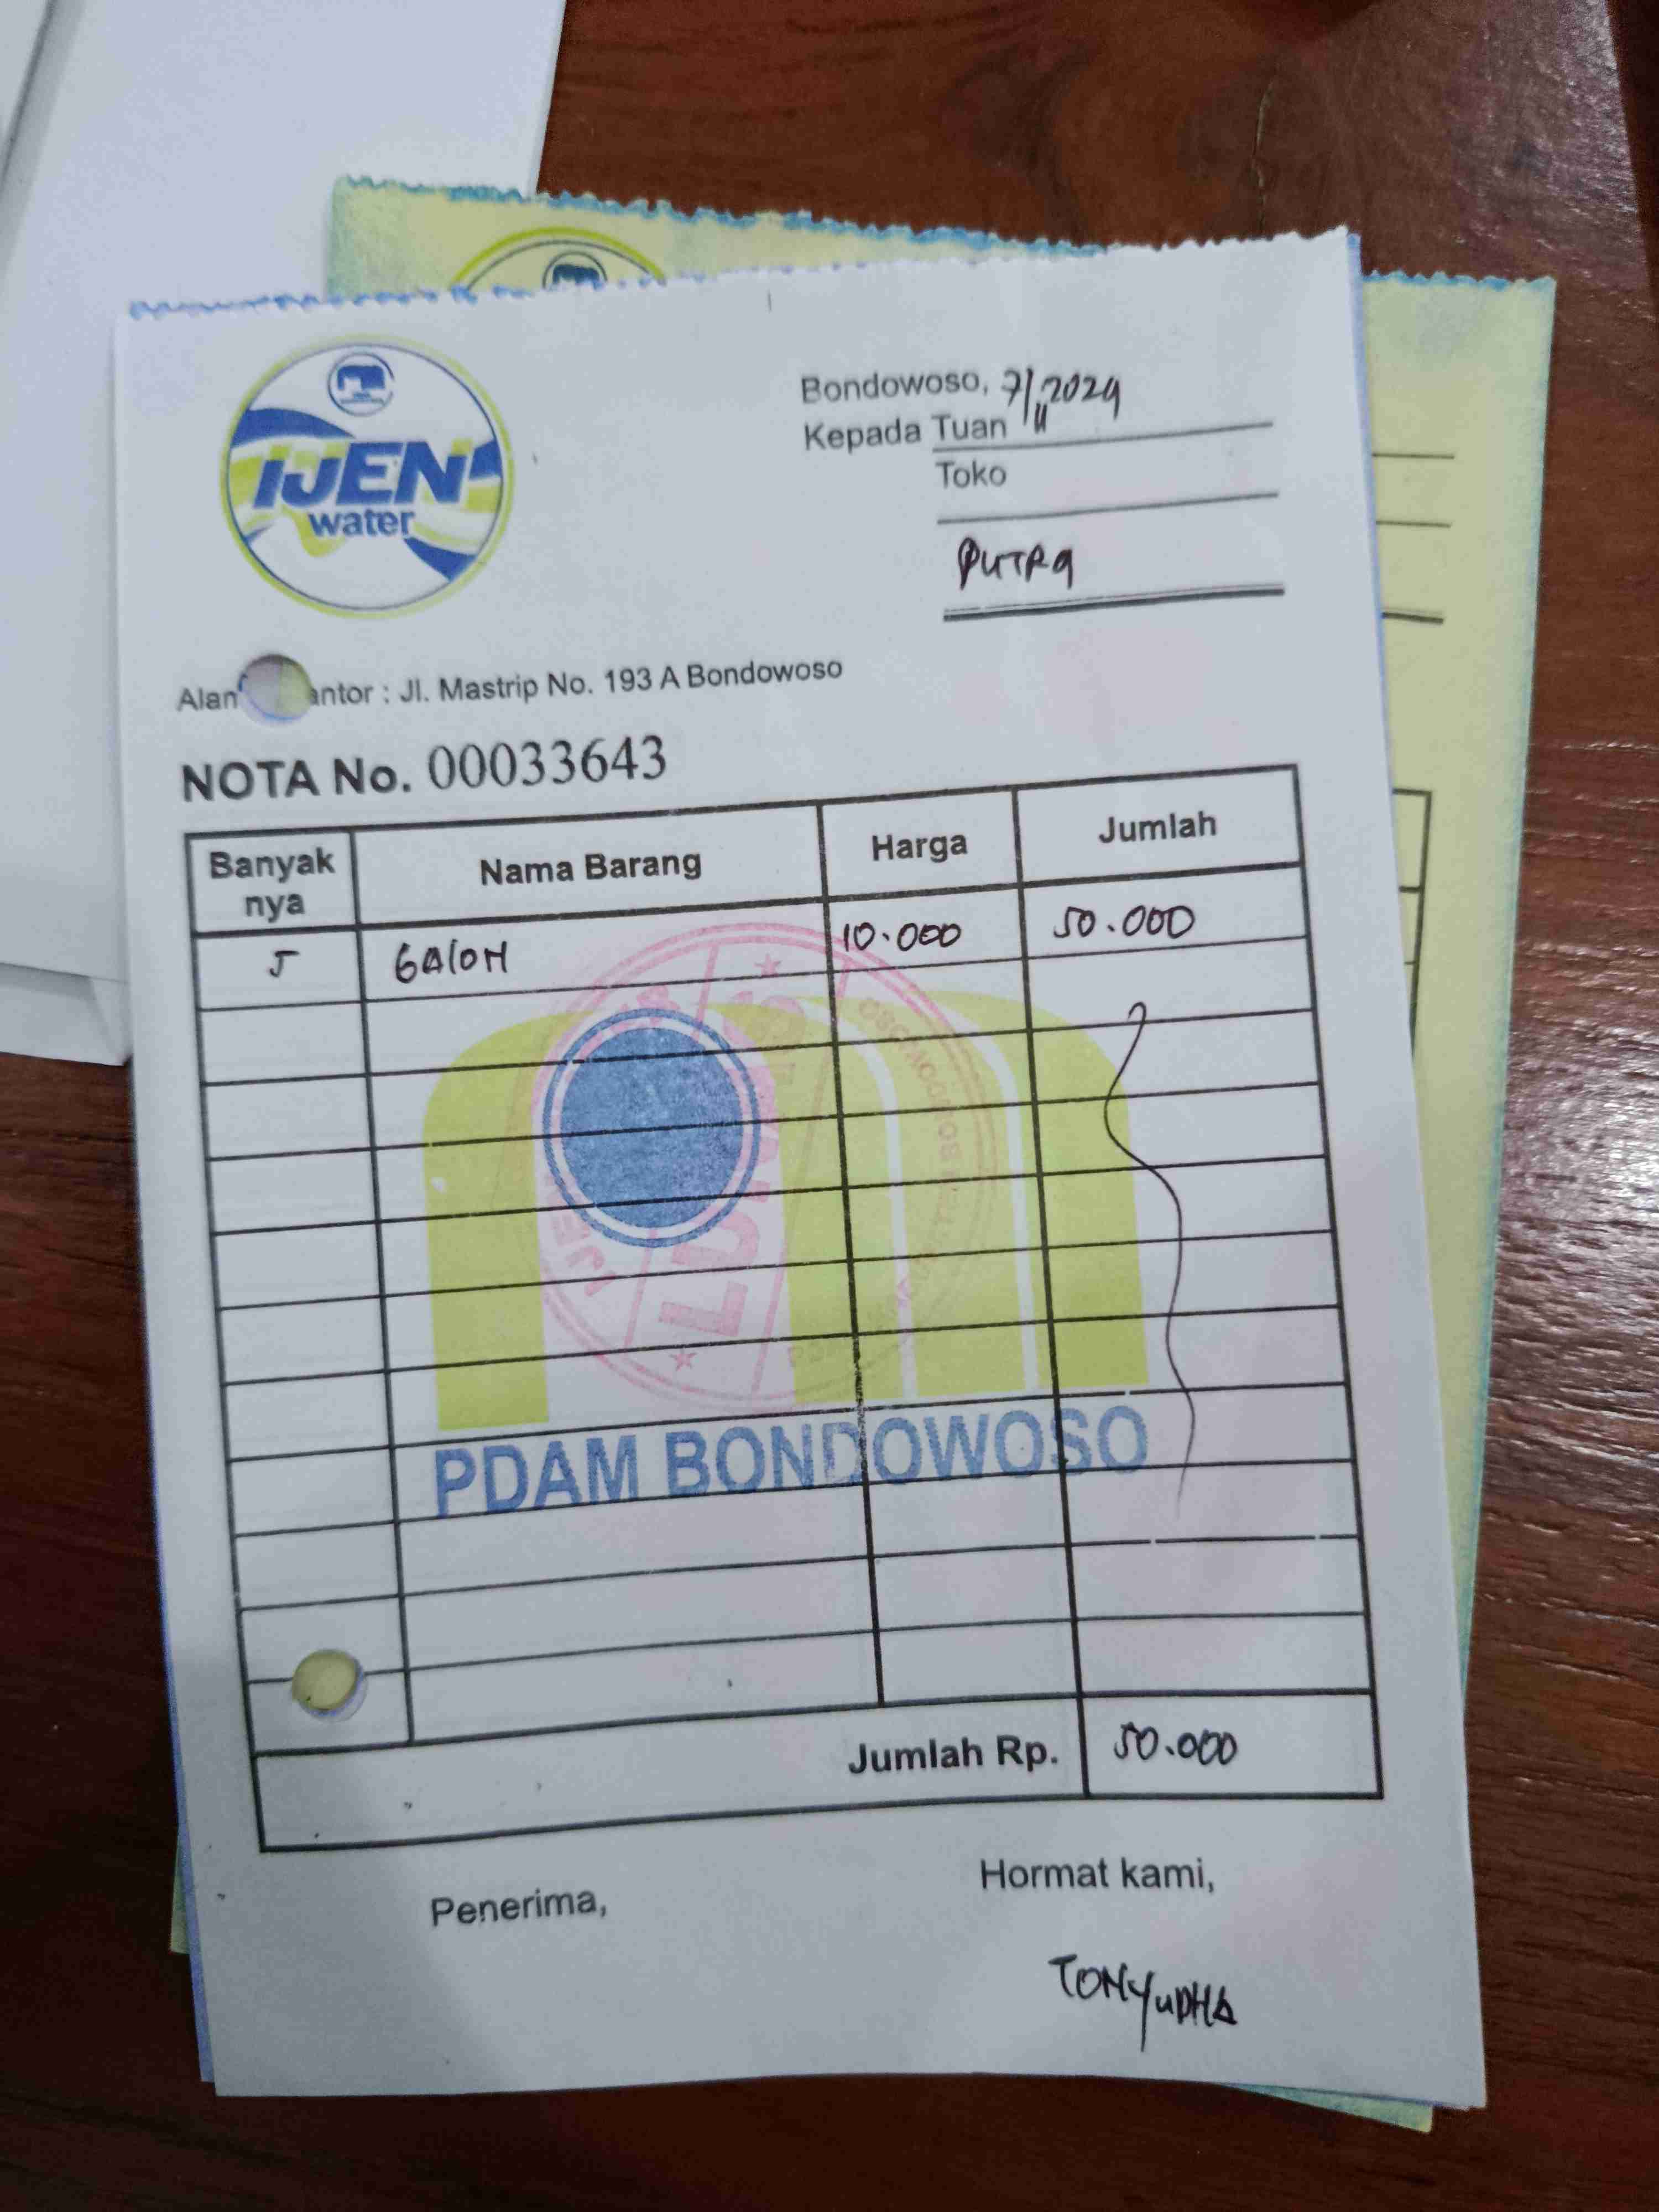 IJEN
water
Bondowoso, 7/11 2024
Kepada Tuan
Toko
PUTRA
Alan antor : Jl. Mastrip No. 193 A Bondowoso
NOTA No. 00033643
Banyak nya Nama Barang Harga Jumlah
5 GAlON 10.000 50.000
PDAM BONDOWOSO
Jumlah Rp. 50.000
Penerima, Hormat kami,
TONYuDHA